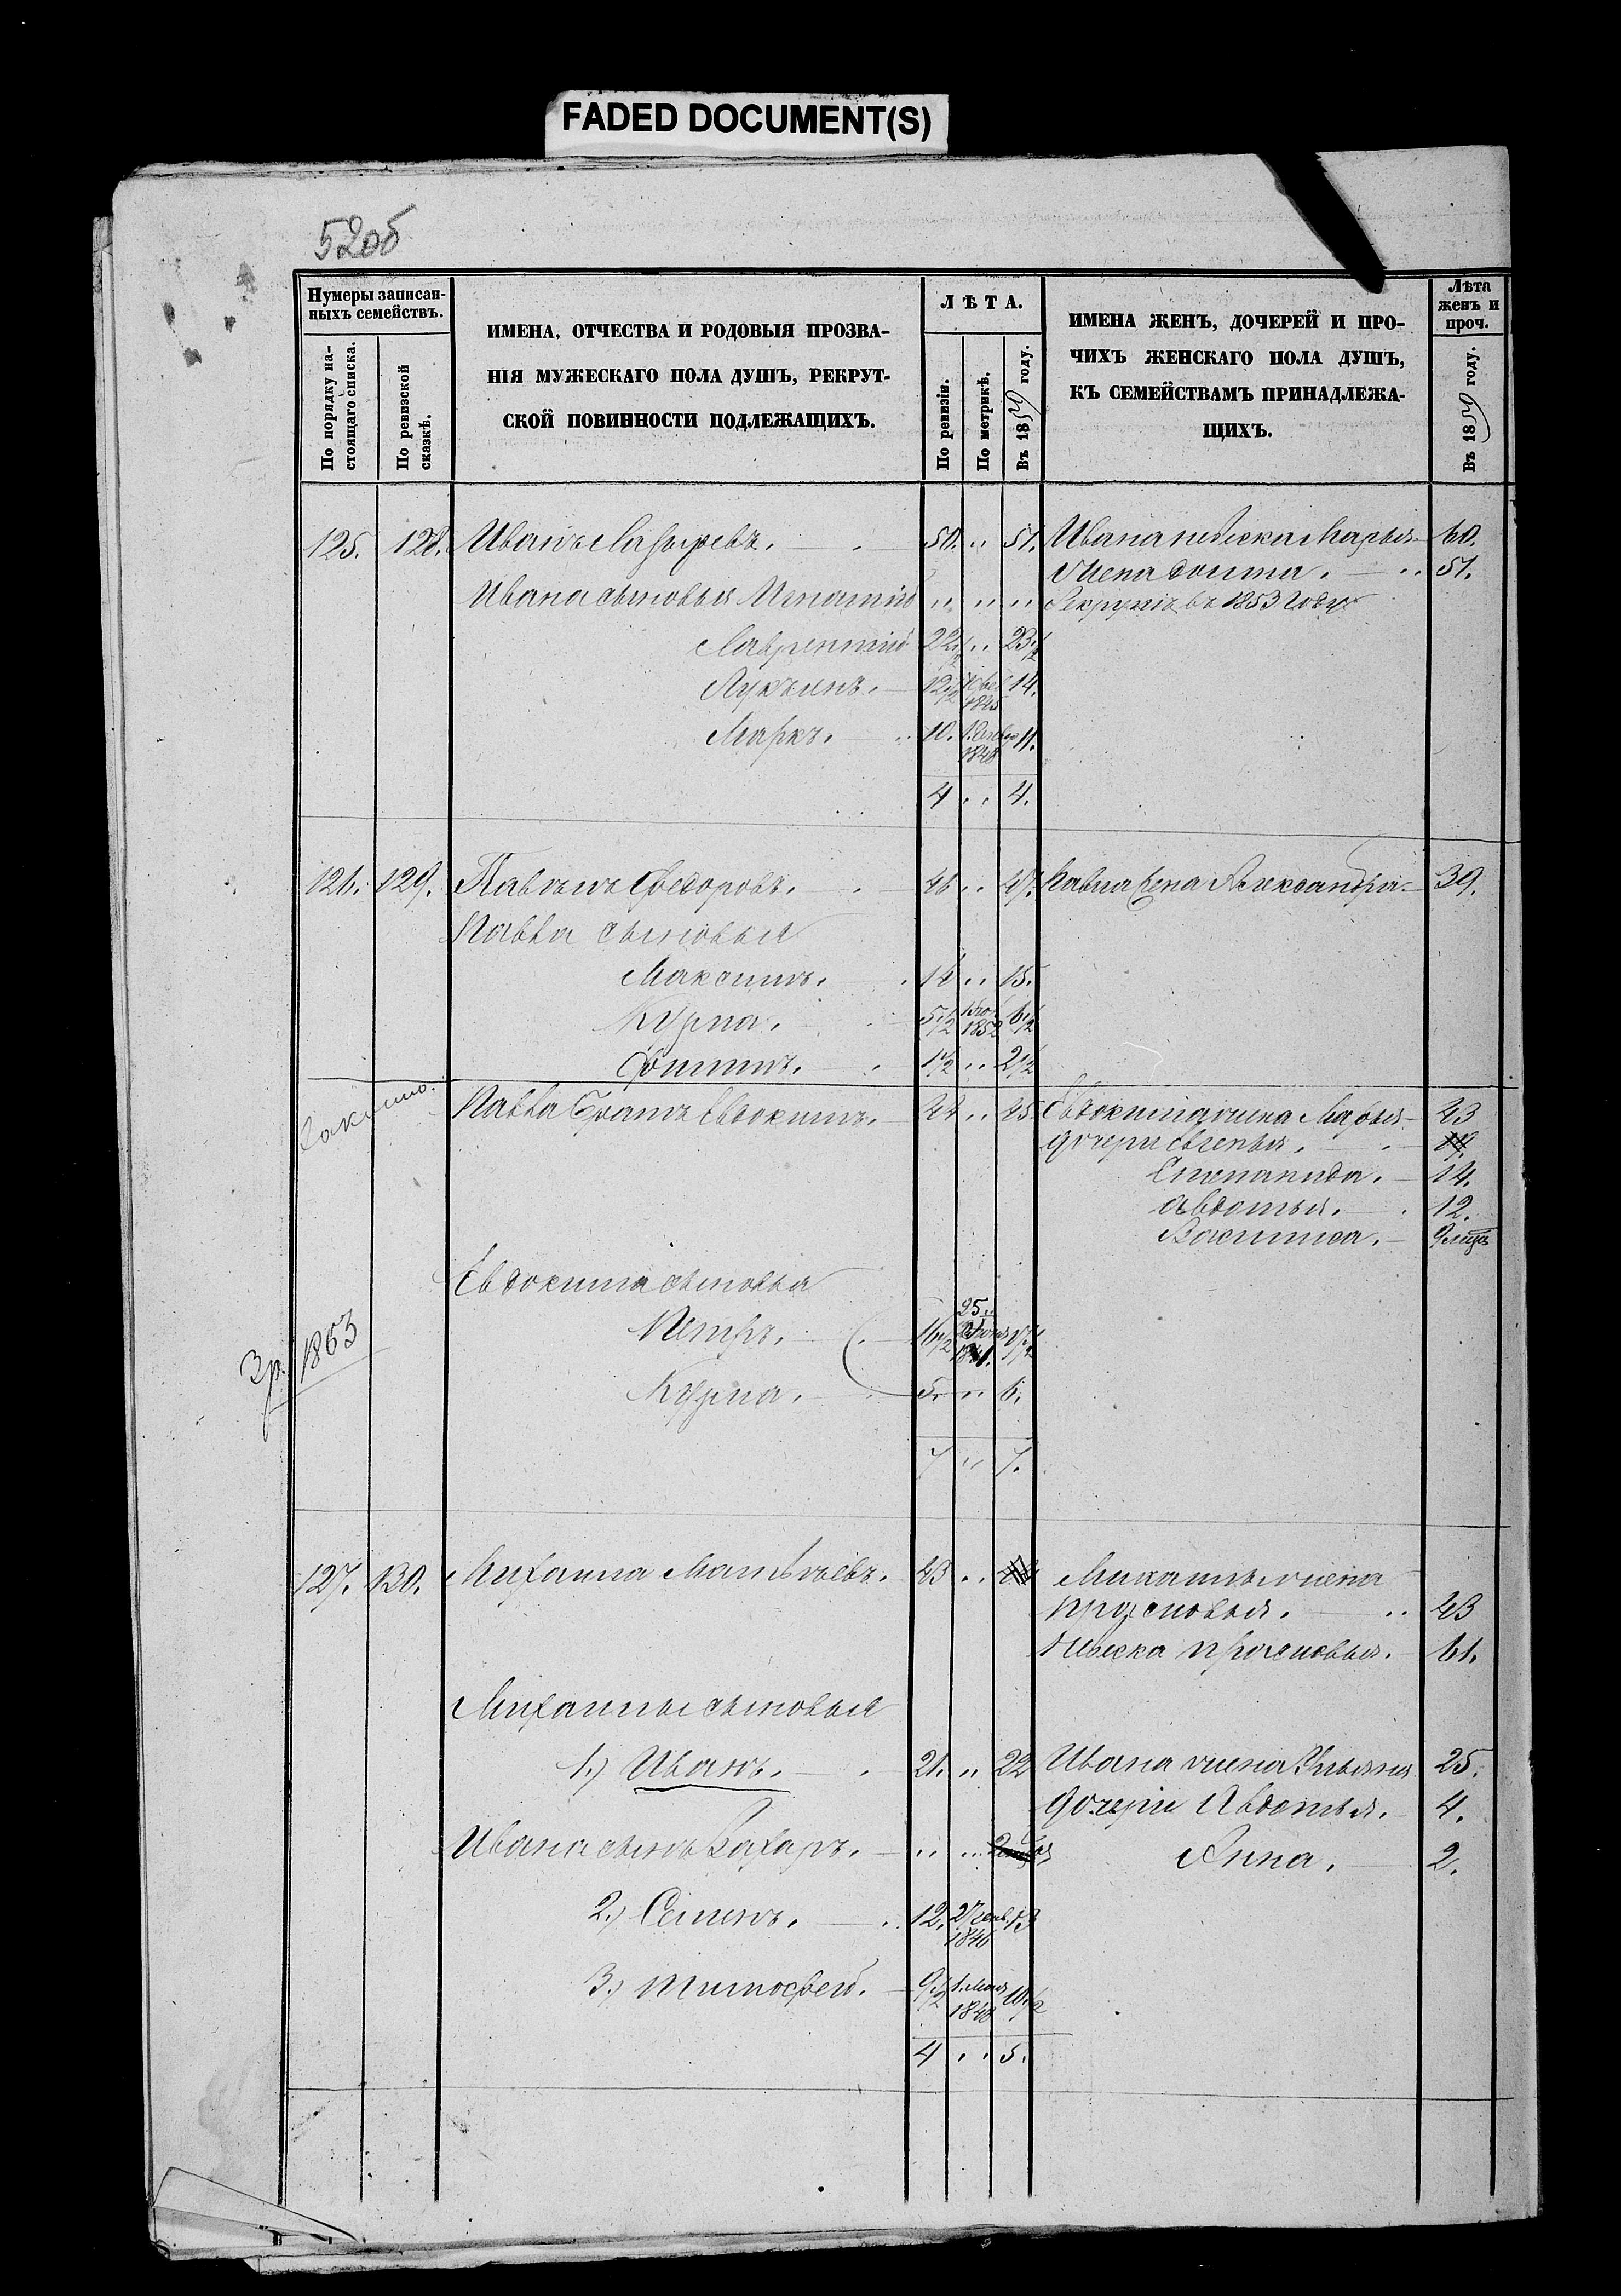 FADED DOCUMENT(S)
52об
Нумеры записан-
ныхъ семействъ.
По порядку на-
стоящаго списка.
По ревизской
сказкѣ.
ИМЕНА, ОТЧЕСТВА И РОДОВЫЯ ПРОЗВА-
НІЯ МУЖЕСКАГО ПОЛА ДУШЪ, РЕКРУТ-
СКОЙ ПОВИННОСТИ ПОДЛЕЖАЩИХЪ.
ЛѢТА.
По ревизіи.
По метрикѣ.
Въ 1859 году.
ИМЕНА ЖЕНЪ, ДОЧЕРЕЙ И ПРО-
ЧИХЪ ЖЕНСКАГО ПОЛА ДУШЪ,
КЪ СЕМЕЙСТВАМЪ ПРИНАДЛЕЖА-
ЩИХЪ.
Лѣта
женъ и
проч.
Въ 1859 году.
125. 128. Иванъ 50. 51. Ивана Марья 60.
жена 51.
Ивана сыновья Игнатій въ 1853 году
Лаврентій 22 1/2 23 1/2
Лукьянъ. 12 1/2 1845 14.
Маркъ. 10. 1848 11.
4 4.
126. 129. Павелъ Федоровъ. 46 47. Павла жена Александра 39.
Павла сыновья
Максимъ. 14 15.
Кузма. 5 1/2 1852 6 1/2
Фотій. 1 1/2 2 1/2
Павла братъ Евдокимъ. 44 45 Евдокима жена Марья 43
дочери Евгенья.
Степанида. 14.
Авдотья. 12.
Василиса. 9 мцв
Евдокима сыновья
Петръ. 16 1/2 25 1841. 17 1/2
3р. 1863
Кузма. 5. 6.
7 7.
127. 130. Михаила Матвѣевъ. 43 Михаилы жена
43
Прасковья. 61.
Михаилы сыновья
1.) Иванъ. 21. 22 Ивана жена Ульяна 25.
дочери Авдотья. 4.
Ивана сынъ Захаръ.
Анна. 2.
2.) Семенъ. 12. 27 1846 13
3.) Тимофей. 9 1/2 1. Мая 1848 10 1/2
4 5.